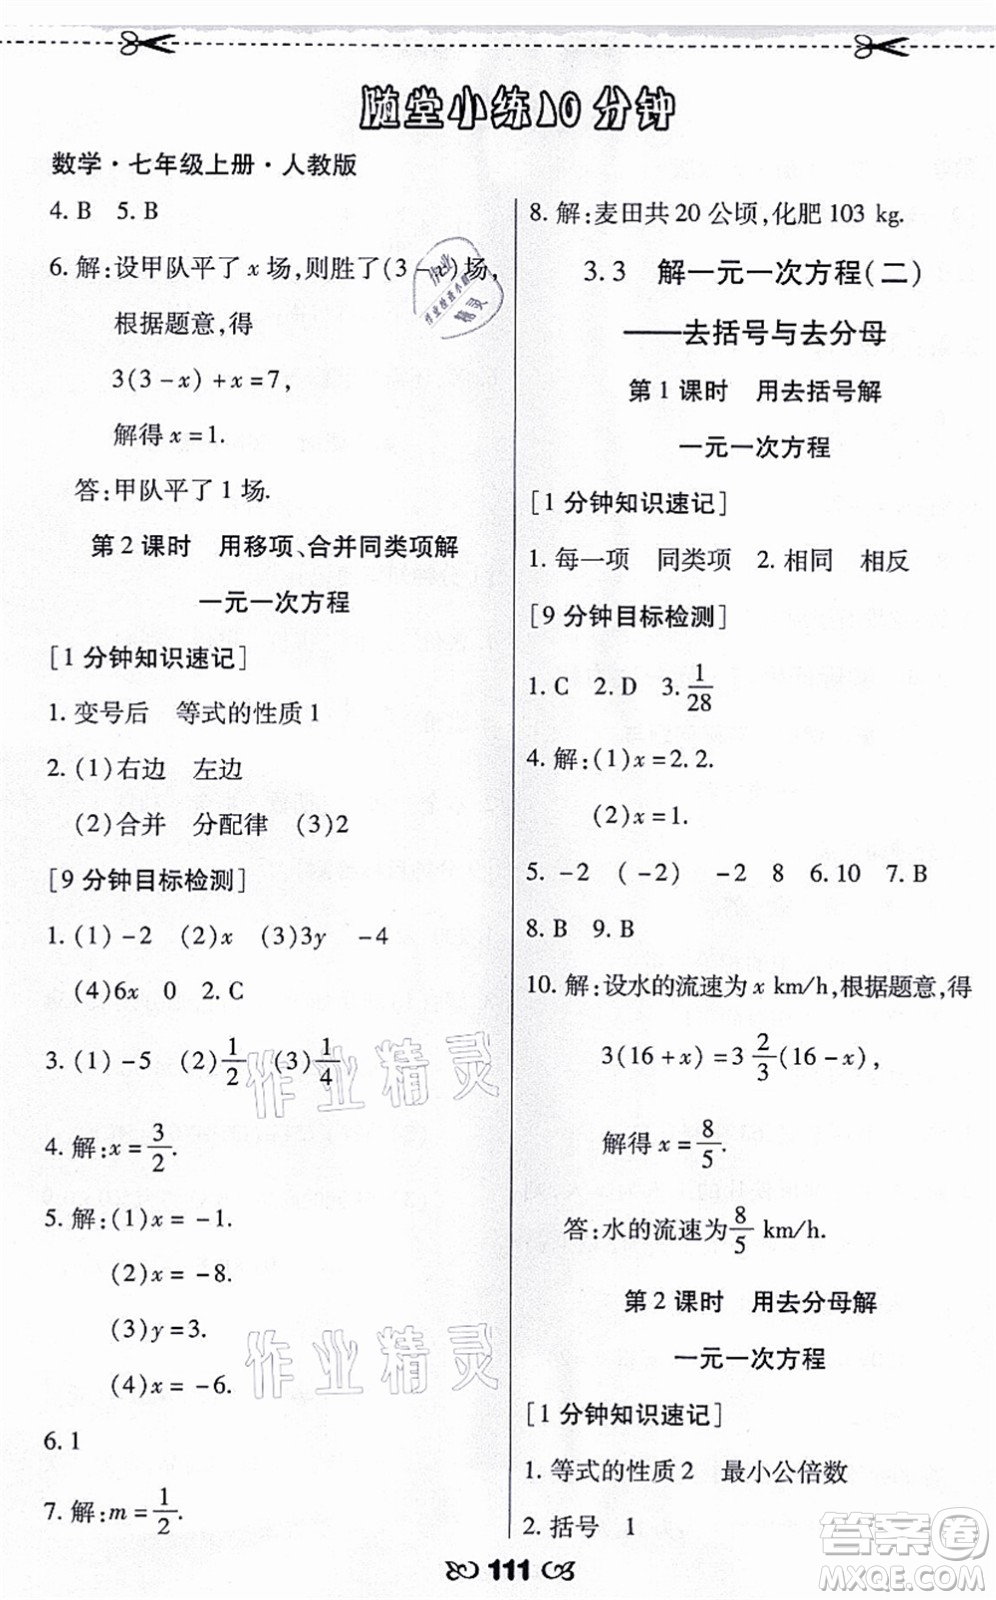 随堂小练10分钟
数学·七年级上册·人教版
4. B  5. B
6. 解:设甲队平了 x 场,则胜了(3-x)场,
根据题意,得
3(3-x)+x=7,
解得 x=1.
答:甲队平了 1 场.
第 2 课时  用移项、合并同类项解
一元一次方程
[1 分钟知识速记]
1. 变号后  等式的性质 1
2. (1)右边  左边
(2)合并  分配律  (3)2
[9 分钟目标检测]
1. (1)-2  (2)x  (3)3y  -4
(4)6x  0  2. C
3. (1)-5  (2)1/2  (3)1/4
4. 解:x=3/2.
5. 解:(1)x=-1.
(2)x=-8.
(3)y=3.
(4)x=-6.
6. 1
7. 解:m=1/2.
8. 解:麦田共 20 公顷,化肥 103 kg.
3.3  解一元一次方程(二)
——去括号与去分母
第 1 课时  用去括号解
一元一次方程
[1 分钟知识速记]
1. 每一项  同类项  2. 相同  相反
[9 分钟目标检测]
1. C  2. D  3. 1/28
4. 解:(1)x=2.2.
(2)x=1.
5. -2  (-2)  -2  8  6. 10  7. B
8. B  9. B
10. 解:设水的流速为 x km/h,根据题意,得
3(16+x)=3 2/3(16-x),
解得 x=8/5.
答:水的流速为8/5 km/h.
第 2 课时  用去分母解
一元一次方程
[1 分钟知识速记]
1. 等式的性质 2  最小公倍数
2. 括号  1
111
作业精灵
作业精灵
答案圈
MXQE.COM